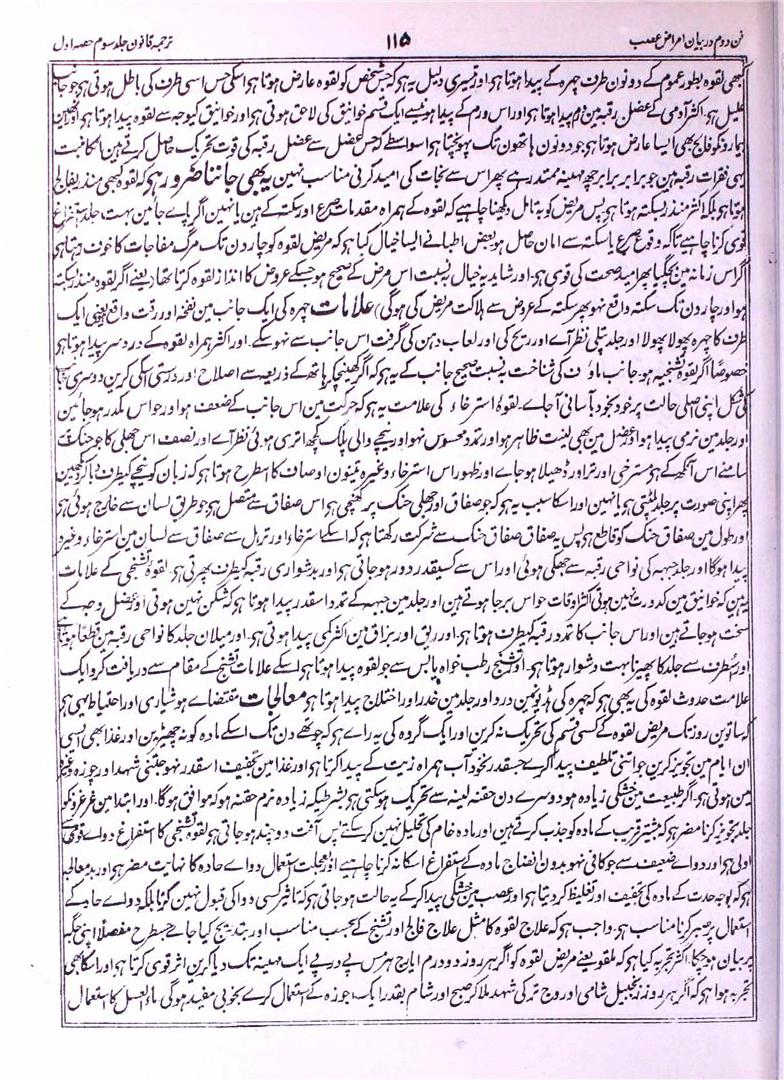 فن دوم در بیان امراض عصب ۱۱۵ ترجمہ قانون جلد سوم حصہ اول
کبھی لقوہ بطور عموم کے دونون طرف چہرہ کے پیدا ہوتا ہو اور تیسری دلیل یہ ہو کہ جس شخص کو لقوہ عارض ہوتا ہو اسکی حس اسی طرف کی باطل ہوتی ہو جو جانب
علیل ہو۔ اکثر آدمی کے عضل رقبہ مین ورم پیدا ہوتا ہو اور اس ورم کے پیدا ہونیسے ایک قسم خوانیق کی لاحق ہوتی ہو اور خوانیق کیوجہ سے لقوہ پیدا ہوتا ہو اور انھین
بیمارونکو فالج بھی ایسا عارض ہوتا ہو جو دونون ہاتھون تک پہونچتا ہو اسواسطے کہ جس عضل سے عضل رقبہ کی قوت تحریک حاصل کرتے ہین اسکا منبت
یہی فقرات رقبہ ہین جو برابر برابر چھہ مہینہ ممتد رہے پھر اس سے نجات کی امید کرنی مناسب نہین یہ بھی جاننا ضرور ہو کہ لقوہ کبھی منذر بفالج
ہوتا ہو بلکہ اکثر منذر بسکتہ ہوتا ہو پس مریض کو بتامل دیکھنا چاہیے کہ لقوہ کے ہمراہ مقدمات صرع اور سکتہ کے ہین یا نہین اگر پاے جائین بہت جلد استفراغ
قوی کرنا چاہیے تاکہ وقوع صرع یا سکتہ سے امان حاصل ہو بعض اطبا نے ایسا خیال کیا ہو کہ مریض لقوہ کو چار دن تک مرگ مفاجات کا خوف رہتا ہو
اگر اس زمانہ مین بچگیا پھر امید صحت کی قوی ہو۔ اور شاید یہ خیال بہ نسبت اس مرض کے صحیح ہو جسکے عروض کا انداز لقوہ کرتا تھا (یعنے اگر لقوہ منذر بسکتہ
ہو اور چار دن تک سکتہ واقع نہو پھر سکتہ کے عروض سے ہلاکت مریض کی نہوگی) علامات چہرہ کی ایک جانب مین نفخہ اور رقت واقع یعنی ایک
طرف کا چہرہ پھولا پھولا اور جلد پتلی نظر آے اور ریح کی اور لعاب دہن کی گرفت اس جانب سے نہوسکے۔ اور اکثر ہمراہ لقوہ کے درد سر پیدا ہوتا ہو
خصوصاً اگر لقوہ تشنجیہ ہو۔ جانب ماؤف کی شناخت بہ نسبت صحیح جانب کے یہ ہو کہ اگر کھینچکر ہاتھ کے ذریعہ سے اصلاح اور درستی اسکی کرین دوسری جانب
کی شکل اپنی اصلی حالت پر خود بخود بآسانی آجاے۔ لقوۂ استرخاء کی علامت یہ ہو کہ حرکت مین اس جانب کے ضعف ہو اور حواس مکدر ہوجائین
اور جلد مین نرمی پیدا ہو اور عضل مین بھی لینت ظاہر ہو اور تمدد محسوس نہو اور نیچے والی پلک کچھ اتری ہوئی نظر آے اور نصف اس جھلی کا جو حنک کے
سامنے اس آنکھ کے ہو مسترخی اور تر اور ڈھیلا ہوجاے اور ظہور اس استرخاء وغیرہ تینون اوصاف کا اسطرح ہوتا ہو کہ زبان کو نیچے کیطرف دباکر دیکھین
پھر اپنی صورت پر جلد پلٹتی ہو یا نہین اور اسکا سبب یہ ہو کہ جو صفاق اور جھلی حنک پر کھنچی ہو اس صفاق سے متصل ہو جو طریق لسان سے خارج ہوئی ہو
اور طول مین صفاق حنک کو قاطع ہو پس یہ صفاق صفاق حنک سے شرکت رکھتا ہو کہ اسکے استرخاء اور ترہل سے صفاق سے لسان مین استرخاء وغیرہ
پیدا ہوگا اور جلد جبہہ کی نواحی رقبہ سے جھکی ہوئی اور اس سے کسیقدر دور ہوجاتی ہو اور بدشواری رقبہ کیطرف پھرتی ہو۔ لقوہ تشنجی کے علامات
یہ ہین کہ خوانیق مین کدورت نہین ہوتی اکثر اوقات حواس برجا ہوتے ہین اور جلد مین جبہہ کے تمدد اسقدر پیدا ہوتا ہو کہ شکن نہین ہوتی اور عضل وجہ کے
سخت ہوجاتے ہین اور اس جانب کا تمدد رقبہ کیطرف ہوتا ہو۔ اور ریق اور بزاق مین اکثر کمی پیدا ہوتی ہو۔ اور میلان جلد کا نواحی رقبہ مین قطعاً ہوتا ہو
اور اسطرف سے جلد کا پھیرنا بہت دشوار ہوتا ہو۔ اور تشنج رطب خواہ یابس سے جو لقوہ پیدا ہوتا ہو اسکے علامات تشنج کے مقام سے دریافت کرو ایک
علامت حدوث لقوہ کی یہ بھی ہو کہ چہرہ کی ہڈیونمین درد اور جلد مین خدر اور اختلاج پیدا ہوتا ہو معالجات مقتضاے ہوشیاری اور احتیاط یہی ہو
کہ ساتوین روز تک مریض لقوہ کے کسی قسم کی تحریک نہ کرین اور ایک گروہ کی یہ راے ہو کہ چوتھے دن تک اسکے مادہ کو نہ چھیڑین اور غذا بھی ایسی
ان ایام مین تجویز کرین جو اتنی تلطیف پیدا کرے جسقدر نخود آب ہمراہ زیت کے پیدا کرتا ہو اور غذا مین تجفیف اسقدر نہو جتنی شہد اور چوزہ وغیرہ
مین ہوتی ہو۔ اگر طبیعت مین خشکی زیادہ ہو دوسرے دن حقنہ لینہ سے تحریک ہوسکتی ہو بشرطیکہ زیادہ نرم حقنہ ہو کہ موافق ہوگا۔ اور ابتدا مین غرغرہ کو
جلد تجویز کرنا مضر ہو کہ بیشتر قریب کے مادہ کو جذب کرتے ہین اور مادہ خام کی تحلیل نہین کرسکتے پس آفت دوچند ہوجاتی ہو لقوہ تشنجی کا استفراغ دواے قوی سے
اولی ہو اور دواے ضعیف سے جو کافی نہو بدون انضاج مادہ کے استفراغ اسکا نہ کرنا چاہیے اور بعجلت استعمال دواے حادہ کا نہایت مضر ہو اور بدمعالجہ
ہو کہ بوجہ حدت کے مادہ کی تجفیف اور تغلیظ کردیتا ہو اور عصب مین خشکی پیدا کرکے یہ حالت ہوجاتی ہو کہ تاثیر کسی دوا کی قبول نہین کرتا بلکہ دواے حاد کے
استعمال پر صبر کرنا مناسب ہو۔ واجب ہو کہ علاج لقوہ کا مثل علاج فالج اور تشنج کے بحسب مناسب اور بتدریج کیا جاے جسطرح مفصلاً اپنی جگہ
پر بیان ہوچکا۔ اکثر تجربہ کیا ہو کہ ملقو یعنے مریض لقوہ کو اگر ہر روز دو درم ایارج ہرمس پے در پے ایک مہینہ تک دیا کرین اثر قوی کرتا ہو اور اسکا بھی
تجربہ ہوا ہو کہ اگر ہر روز زنجبیل شامی اور وج ترکی شہد ملاکر صبح اور شام بقدر ایک جوزہ کے استعمال کرے بخوبی مفید ہوگی ماء العسل کا استعمال